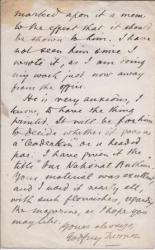 marked upon it a mem.
to the effect that it should
be shown to him. I have
not seen him since I
wrote it, as I am doing
my work just now away
from the office.
He is very anxious, I
know, to have the thing
printed. It will be for him
to decide whether it goes in
a "Leaderette" or a headed
par. I have given it the
title
Your material was excellent
and I used it nearly all,
with such flourishes, regarding
the magazine, as I hope you
may like.
Yours always,
Godfrey Turner